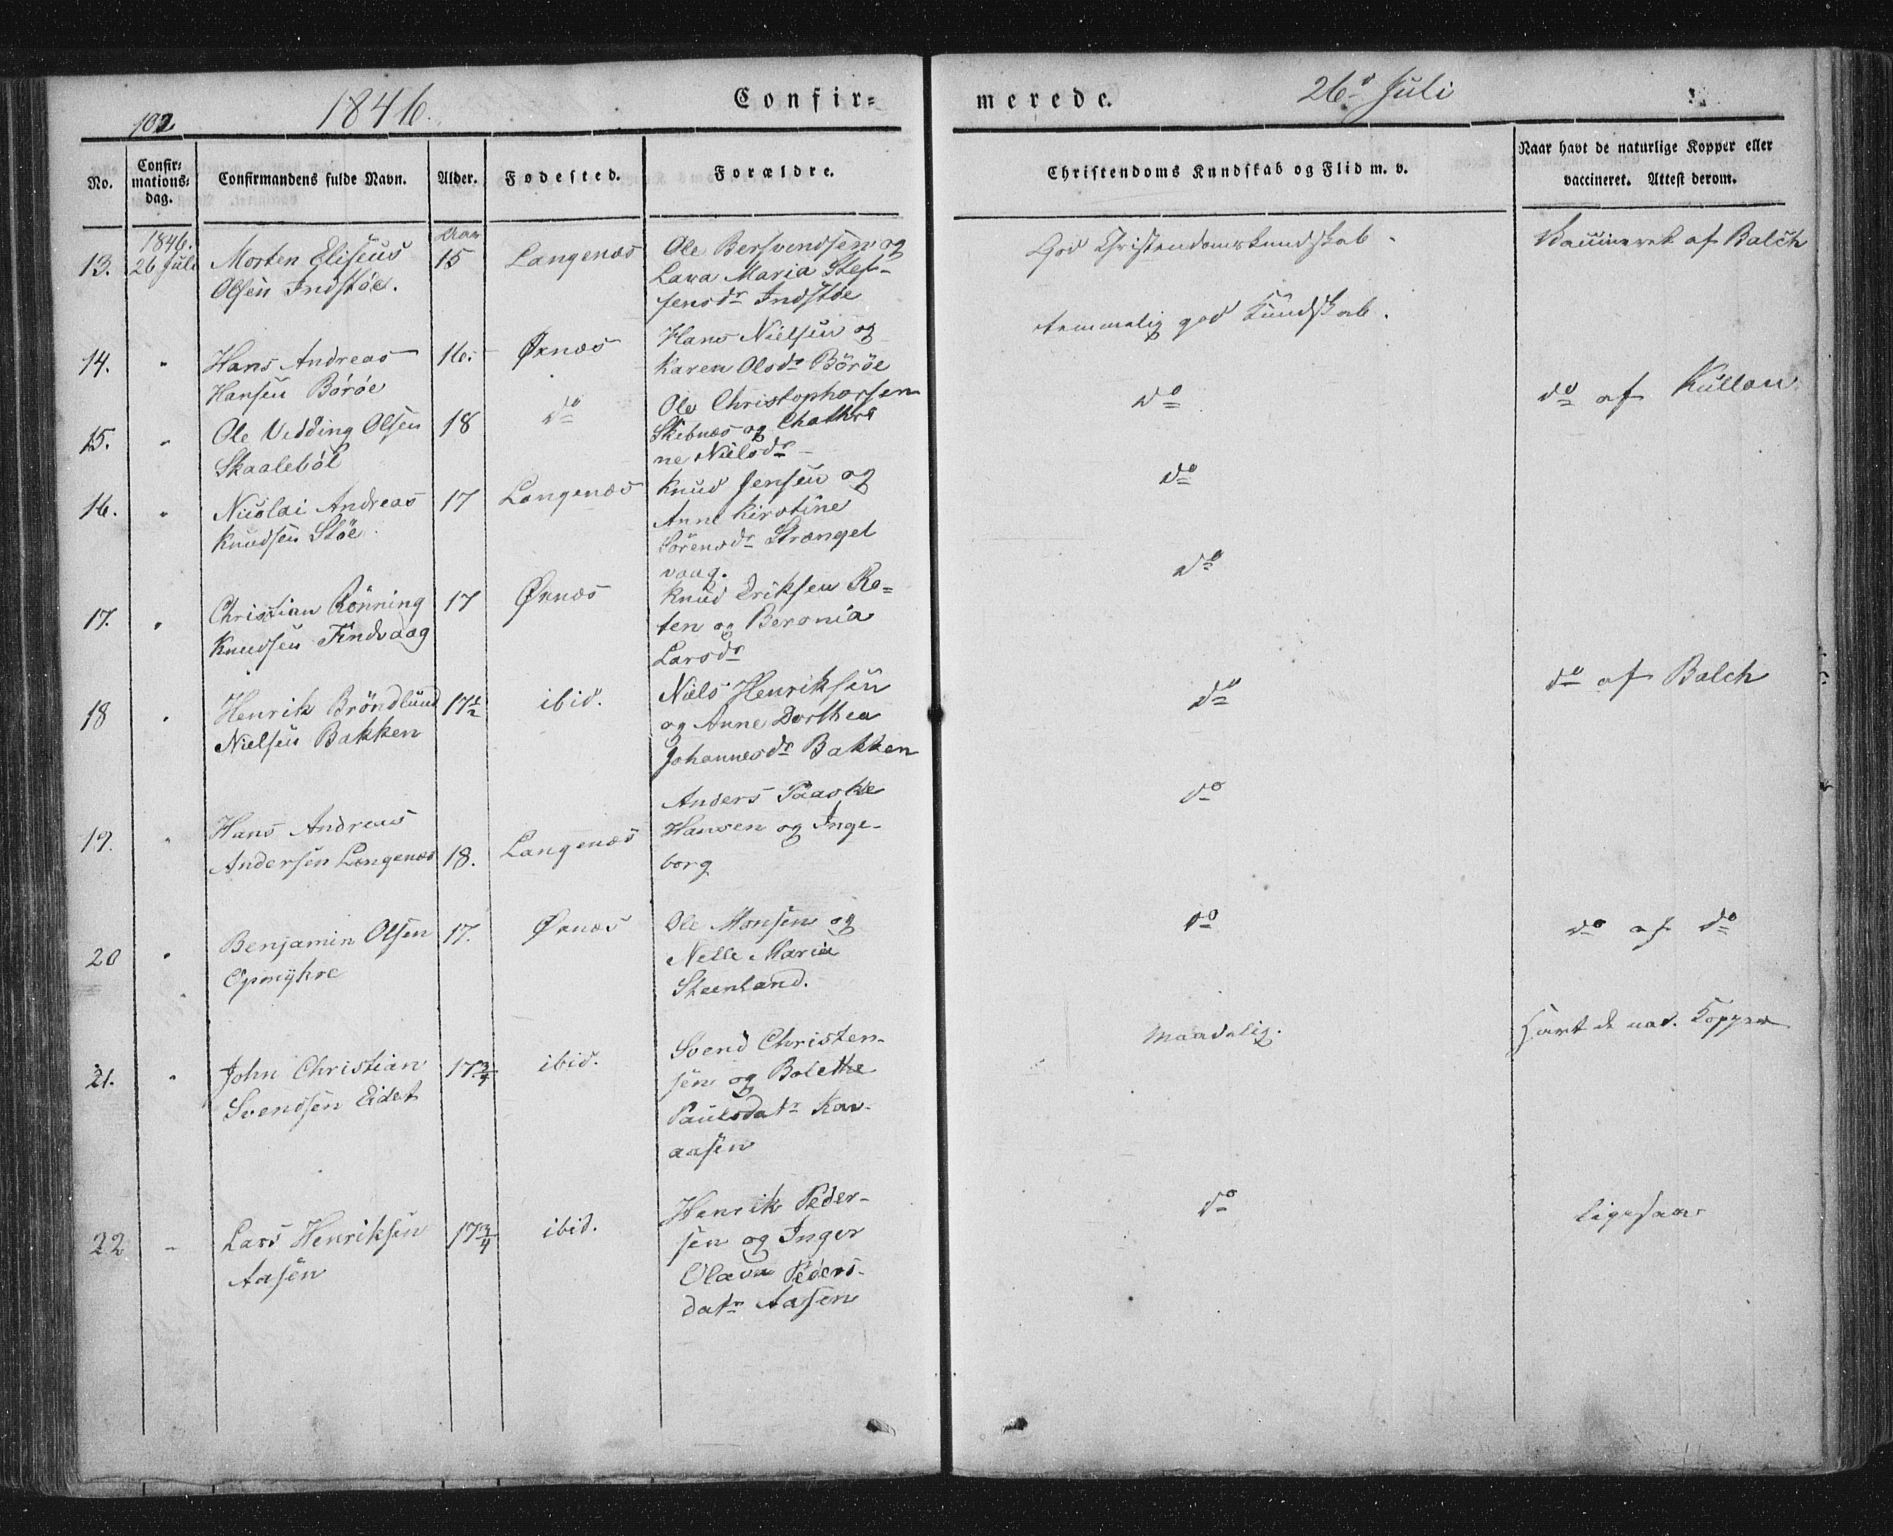 102
1846.
Confir=
merede.
26de Juli
No.
Confir=
mations=
dag.
Confirmandens fulde Navn.
Alder.
Fødested.
Forældre.
Christendoms Kundskab og Flid m. v.
Naar havt de naturlige Kopper eller
vaccineret. Attest derom.
13.
1846.
26 Juli
Morten Eliseus
Olsen Indstøe.
Aar
15
Langenæs
Ole Bersvendsen og
Lava Maria Stef-
fensdr Indstöe
God Christendomskundskab.
Vaccineret af Balch
14.
"
Hans Andreas
Hansen Börøe
16.
Øxnæs
Hans Nielsen og
Karen Olsdr Börøe
temmelig god Kundskab.
15.
"
Ole Vedding Olsen
Skaaleböl
18
do
Ole Christophersen
Skibnæs og Chathri
ne Nielsdr
do
do af Kullan
16.
"
Nicolai Andreas
Knudsen Støe
17
Langenæs
Knud Jensen og
Anne Kirstine
Sörensdr Strængel
vaag.
do
17.
"
Christian Rönning
Knudsen Tindvaag
17
Øxnæs
Knud Eriksen Ro-
ten og Beronia
Larsdr
do
18
"
Henrik Bröndlund
Nielsen Bakken
17½
ibid.
Niels Henriksen
og Anne Dorthea
Johannesdr Bakken
do
do af Balch
19.
"
Hans Andreas
Andersen Langenæs
18.
Langenæs
Anders Paaske
Hansen og Inge-
borg
do
20
"
Benjamin Olsen
Opmyhre
17.
Øxnæs
Ole Monsen og
Nelle Maria
Steenland.
do
do af do
21.
"
John Christian
Svendsen Eidet
17¾
ibid.
Svend Christen-
sen og Bolethe
Paulsdatr Kav-
aasen
Maadelig.
Havt de nat. Kopper
22
"
Lars Henriksen
Aasen
17¾
ibid.
Henrik Peder-
sen og Inger
Olava Peders-
datr Aasen
do
Ligesaa